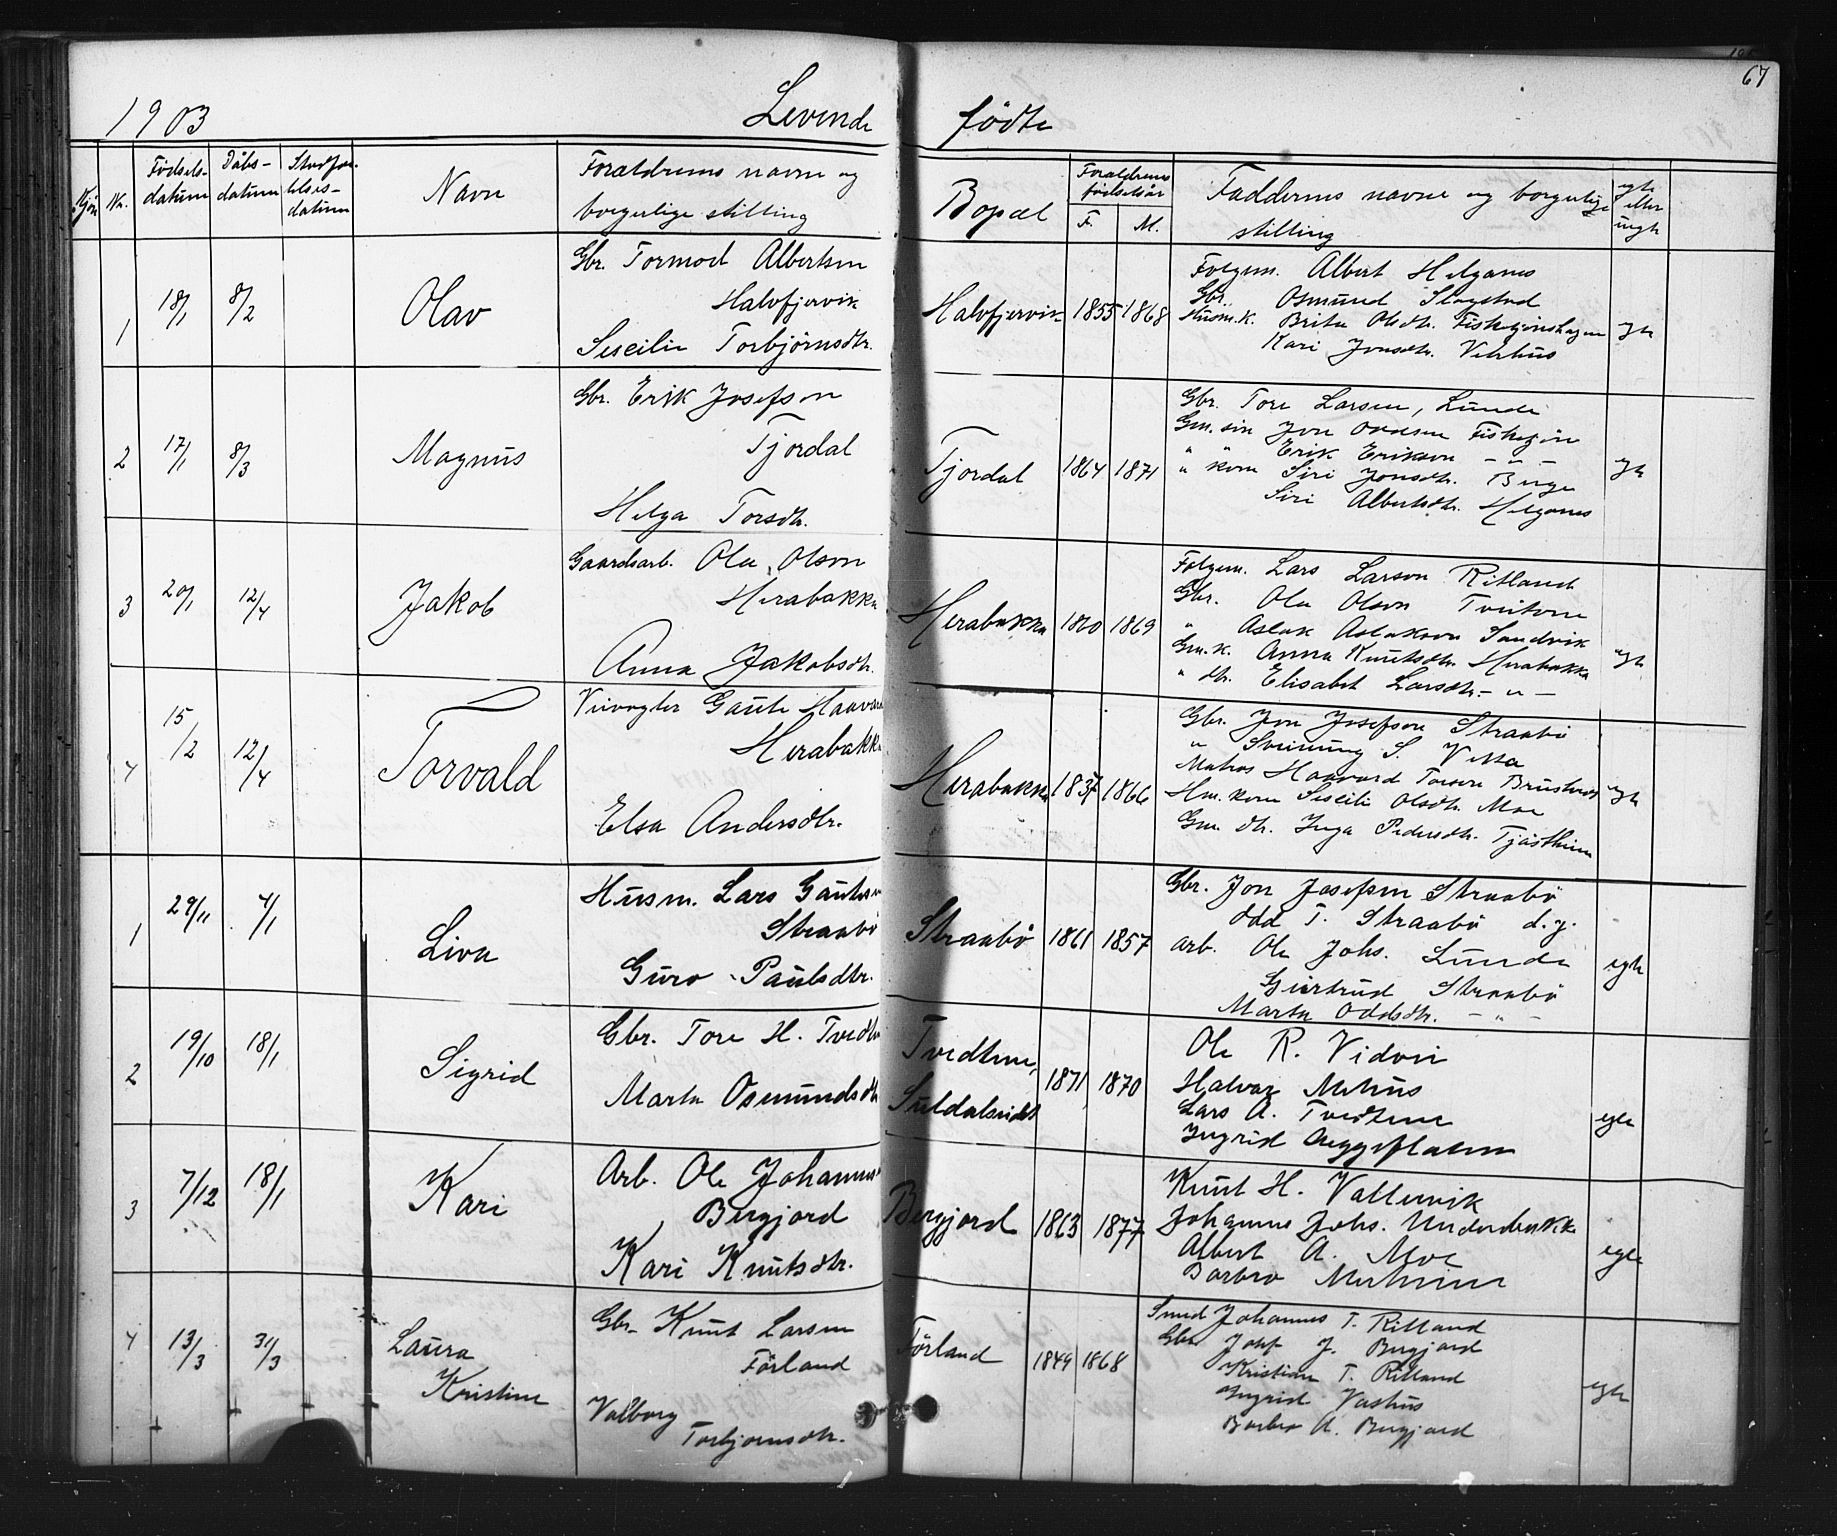 67
1903 Levende fødte
Kjøn
Nr.
Fødsels-
datum
Dåbs-
datum
datum
Navn
Forældrenes navne og
borgerlige stilling
Bopæl
Forældrenes
fødselsår
F. M.
Faddernes navne og borgerlige
stilling
egte
eller
uegte
1 18/1 8/2 Olav
Gbr. Tormod Albertsen
Halvfjervik
Seseilie Torbjørnsdtr.
Halvfjervik 1855 1868
Folgem. Albert Helganes
Gbr. Osmund Slagstad
Husm.k. Brita Olsdtr.
Kari Jonsdtr. Vehus
egte
2 17/1 8/3 Magnus
Gbr. Erik Josefson
Tjordal
Helga Torsdtr.
Tjordal 1864 1871
Gbr. Tore Larsen, Lunde
Gm. søn Jon
" Erik Erikson - " -
" kone Siri Jonsdtr. Berge
Siri Albertsdtr. Helganes
egte
3 20/1 12/4 Jakob
Gaardsarb. Ola Olson
Herabakka
Anna Jakobsdtr.
Herabakka 1860 1869
Folgem. Lars Larson Ritland
Gbr. Ola Olson Tveitane
" Aslak Aslakson Sandvik
Gm. k. Anna Knutsdtr. Herabakka
" dtr. Elisabet Larsdtr. - " -
egte
4 15/2 12/4 Torvald
Veivogter Gaute Haavards
Herabakka
Elsa Andersdtr.
Herabakka 1837 1866
Gbr. Jon Josefson Straabø
" Sveinung S.
Matros Haavard Torsen
Hm. kone Seseilie Olsdtr. Moe
Gm. dtr. Inga Pedersdtr. Tjøstheim
egte
1 29/11 4/1 Liva
Husm. Lars Gautesen
Straabø
Guro Paulsdtr.
Straabø 1861 1857
Gbr. Jon Josefsen Straabø
Odd T. Straabø d.y.
Arb. Ole Johs. Lunde
Gjertrud Straabø
Marta Oddsdtr. - " -
egte
2 19/10 18/1 Sigrid
Gbr. Tore H. Tvedte
Marta Osmundsdtr
Tvedtene,
Suldalseidet
1871 1870
Ole R.
Halvar Mehus
Lars A. Tvedtene
Ingrid
egte
3 7/12 18/1 Kari
Arb. Ole Johannes
Bergjord
Kari Knutsdtr.
Bergjord 1863 1877
Knut H. Vallervik
Johannes Johs. Underbakke
Albert A. Moe
Barbro
egte
4 13/3 31/3 Laura
Kristine
Gbr. Knut Larsen
Førland
Valborg
Torbjørnsdtr.
Førland 1849 1868
Smed Johannes T. Ritland
Gbr. Josef J. Bergjord
Kristian T. Ritland
Ingrid Vashus
Barbro A. Bergjord
egte